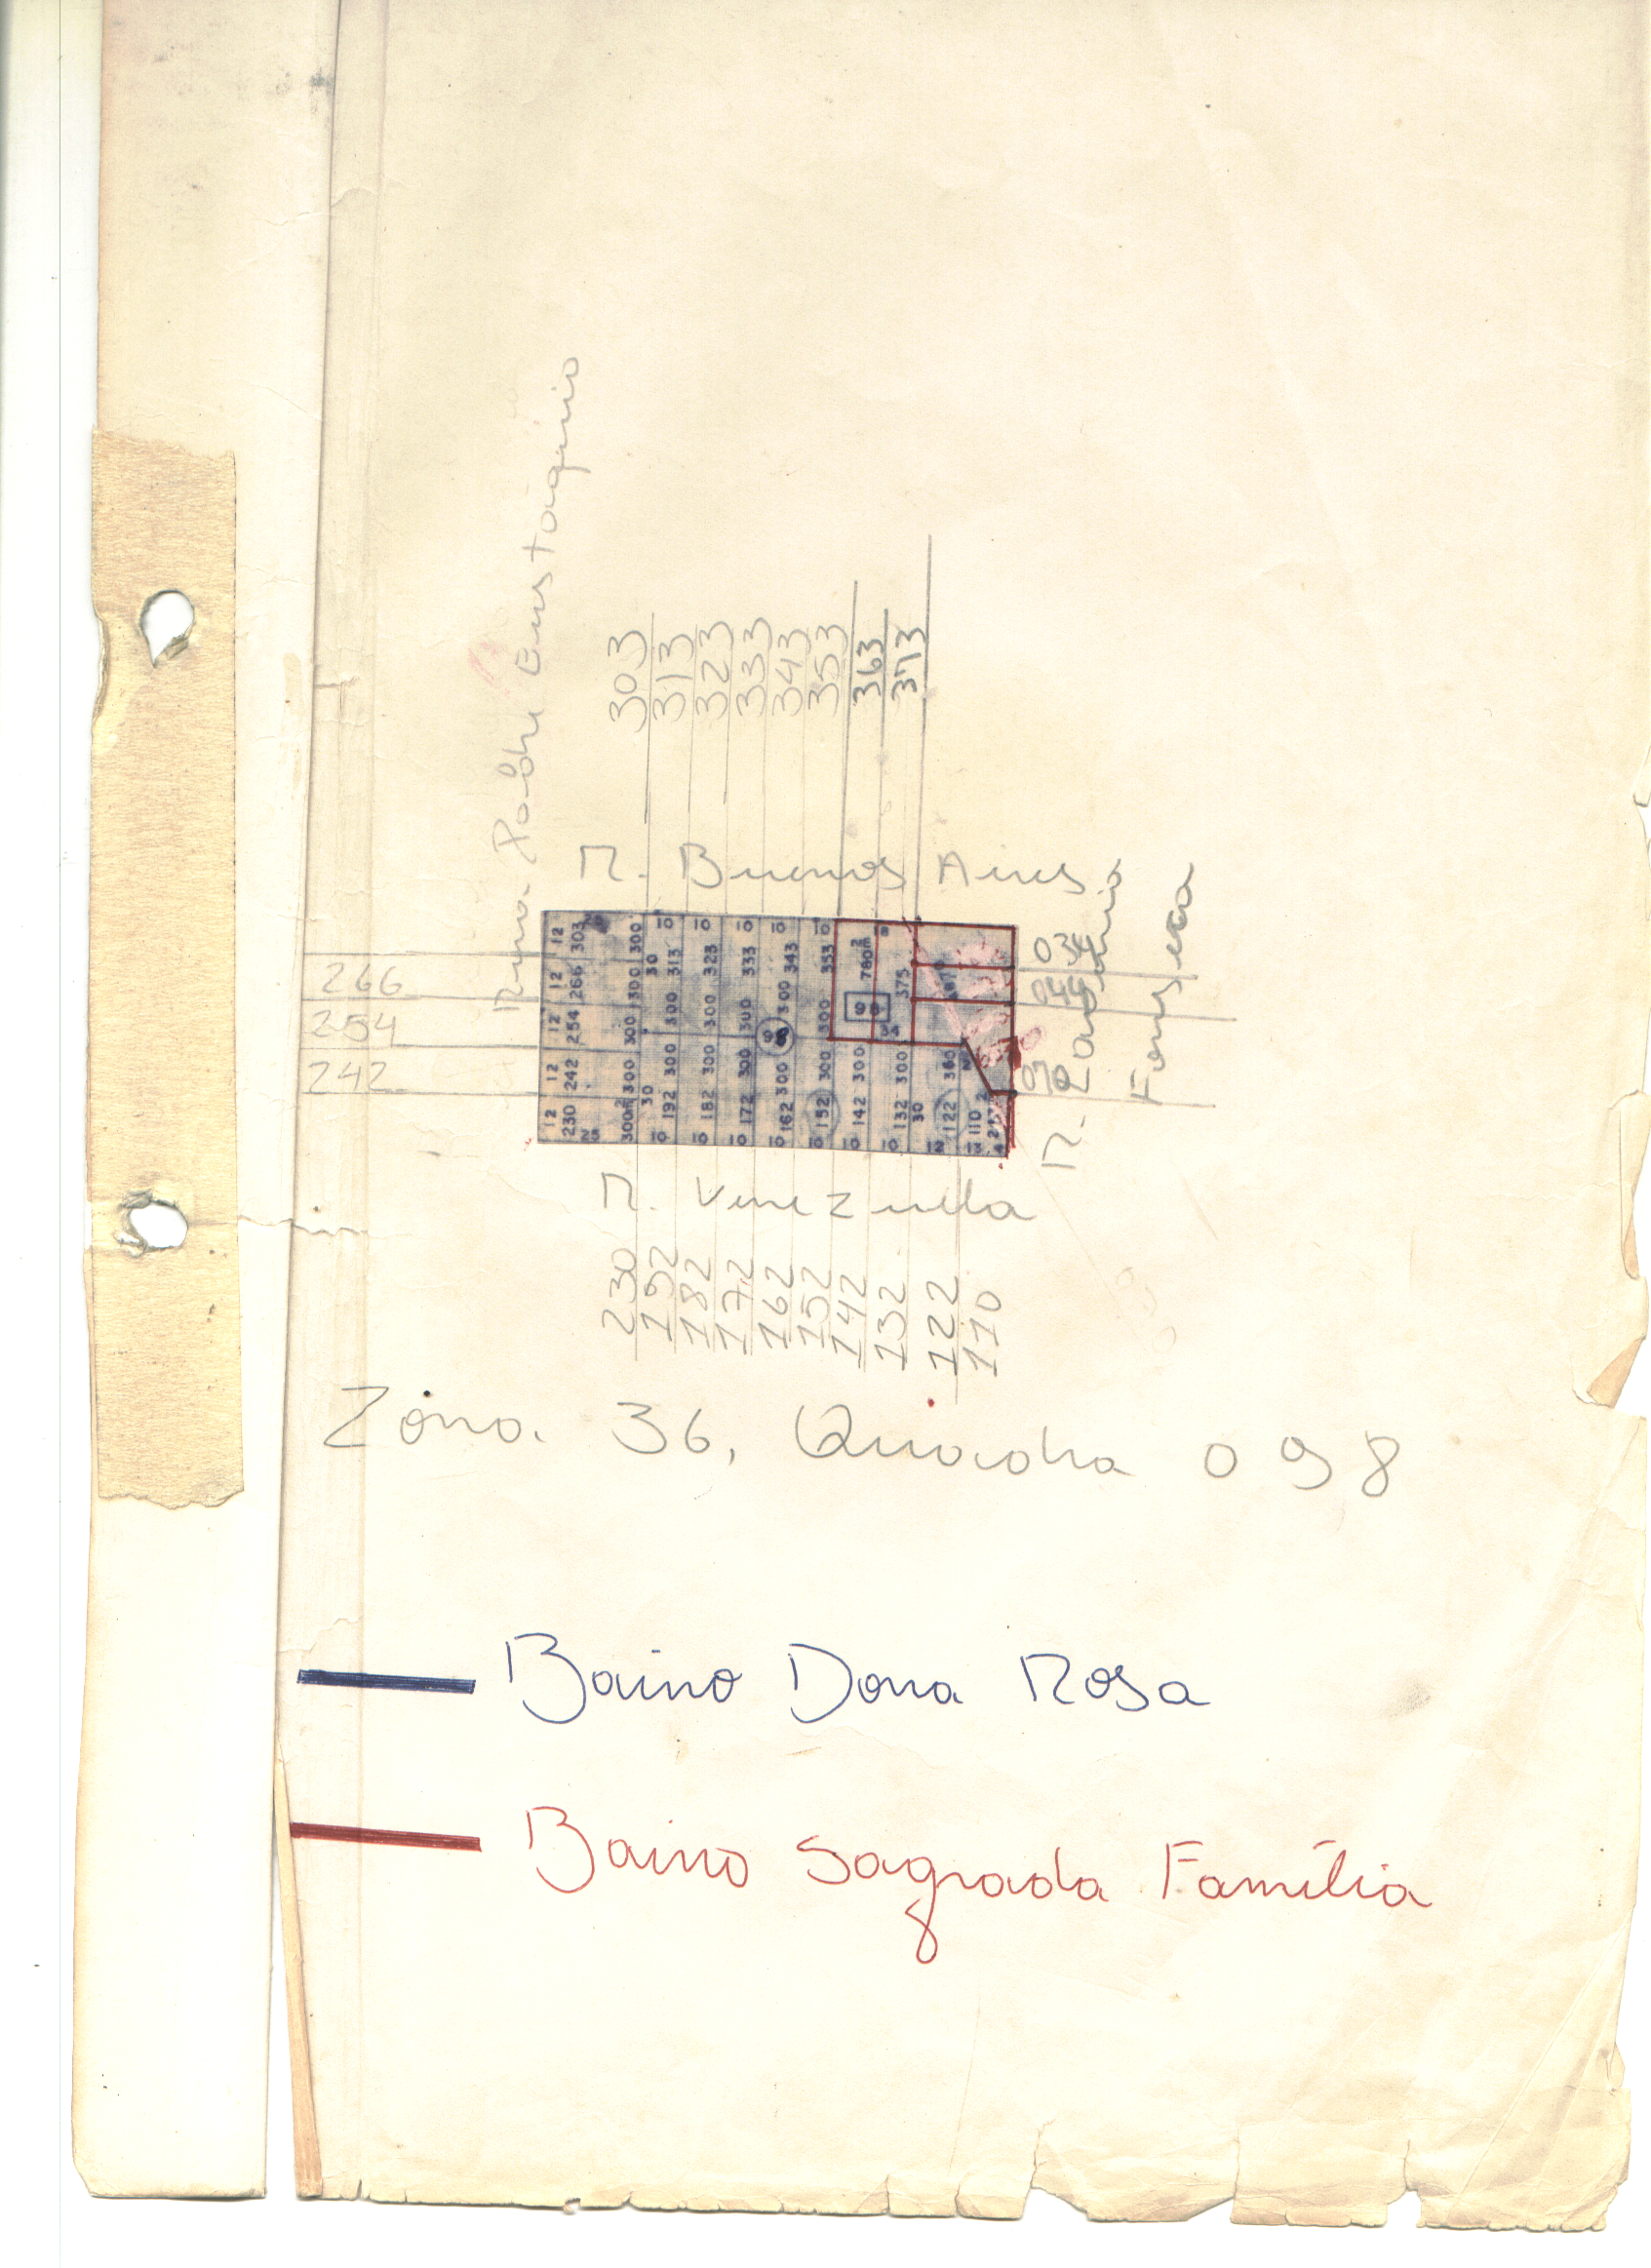 Rua Padre Eustaquio
303
313
323
333
343
353
363
373
R. Buenos Aires
266
254
242
12 12 12 12 12
230 242 254 266 303
25
300m² 300 300 300 300
30 30
10 192 300 300 313 10
10 182 300 300 323 10
10 172 300 300 333 10
10 162 300 300 343 10
10 152 300 300 353 10
10 142 300 780m²
10 132 300 375
30
12 122 360
13 110
98
034
070
R.
Fonseca
R. Venezuela
230
192
182
172
162
152
142
132
122
110
Zona 36, Quadra 098
Bairro Dona Rosa
Bairro Sagrada Família